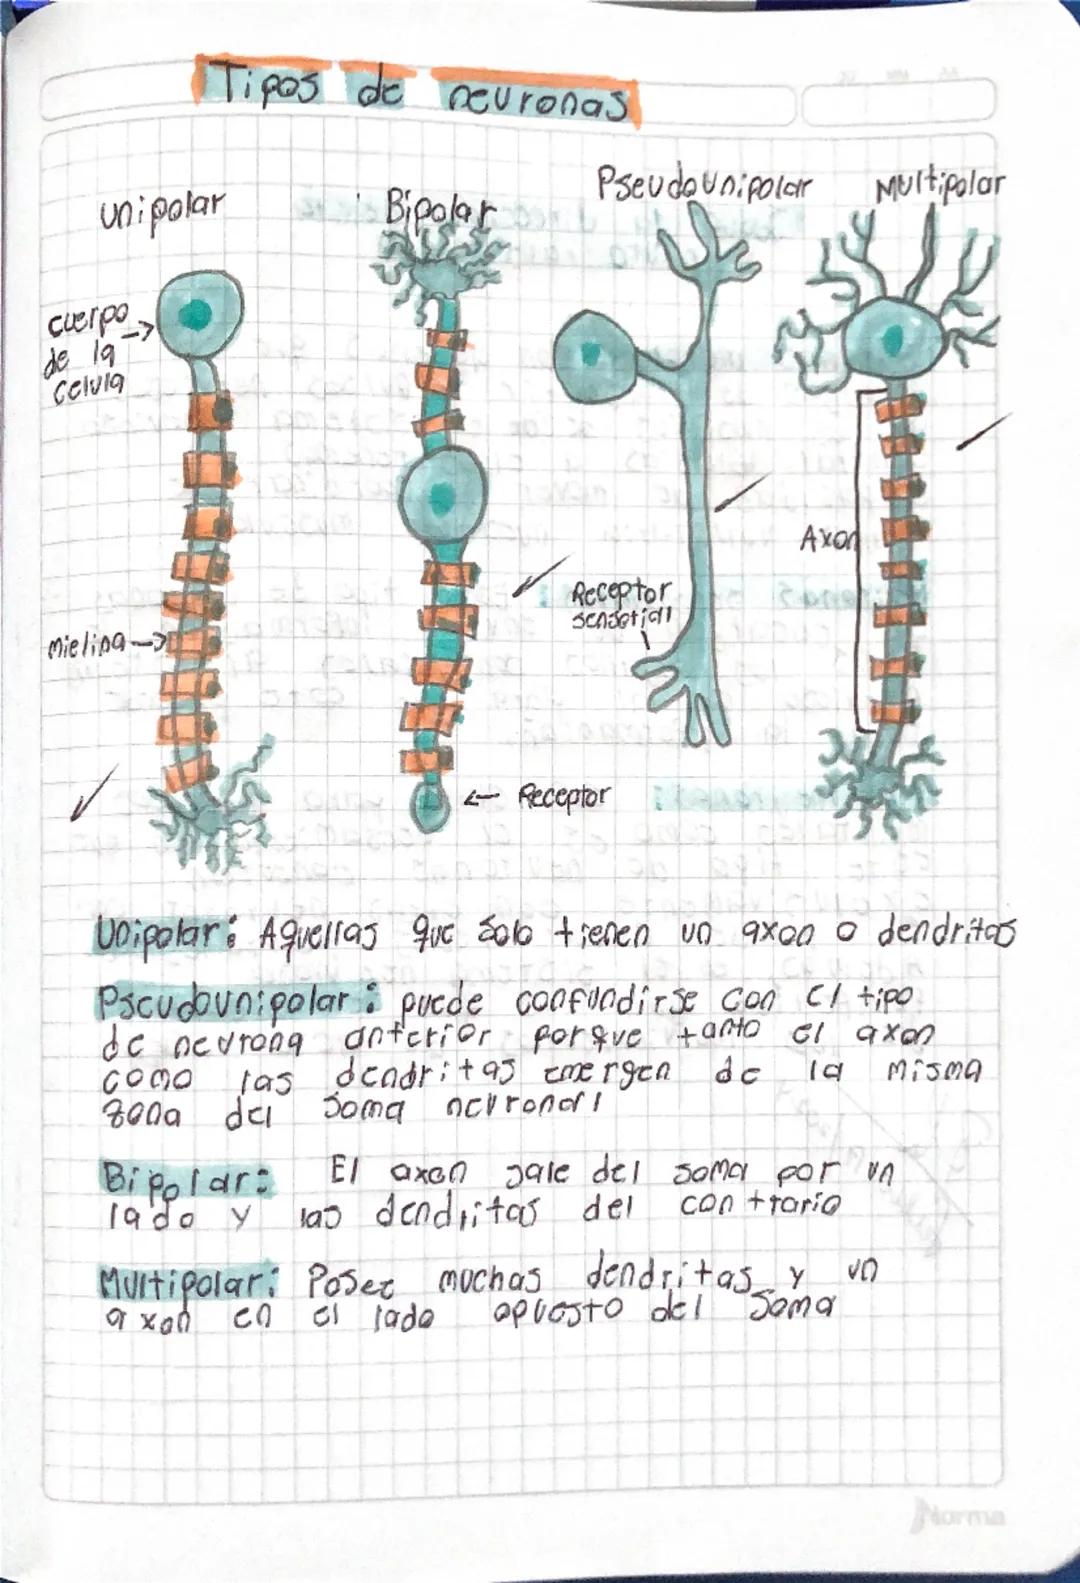 Tipos de neuronas
unipolar
Bipolar
Pseudounipolar
Multipolar
cuerpo
de la
celula
Axon
Receptor
sensorial
mielina
Receptor
Unipolar: Aquellas que solo tienen un axon o dendritas
Pseudounipolar: puede confundirse con el tipo
de neurona anterior porque tanto el axon
como las dendritas emergen de la misma
zona del soma neuronal
Bipolar: El axon sale del soma por un
lado y las dendritas del contrario
Multipolar: Posee muchas dendritas y un
axon en el lado opuesto del soma
Norma